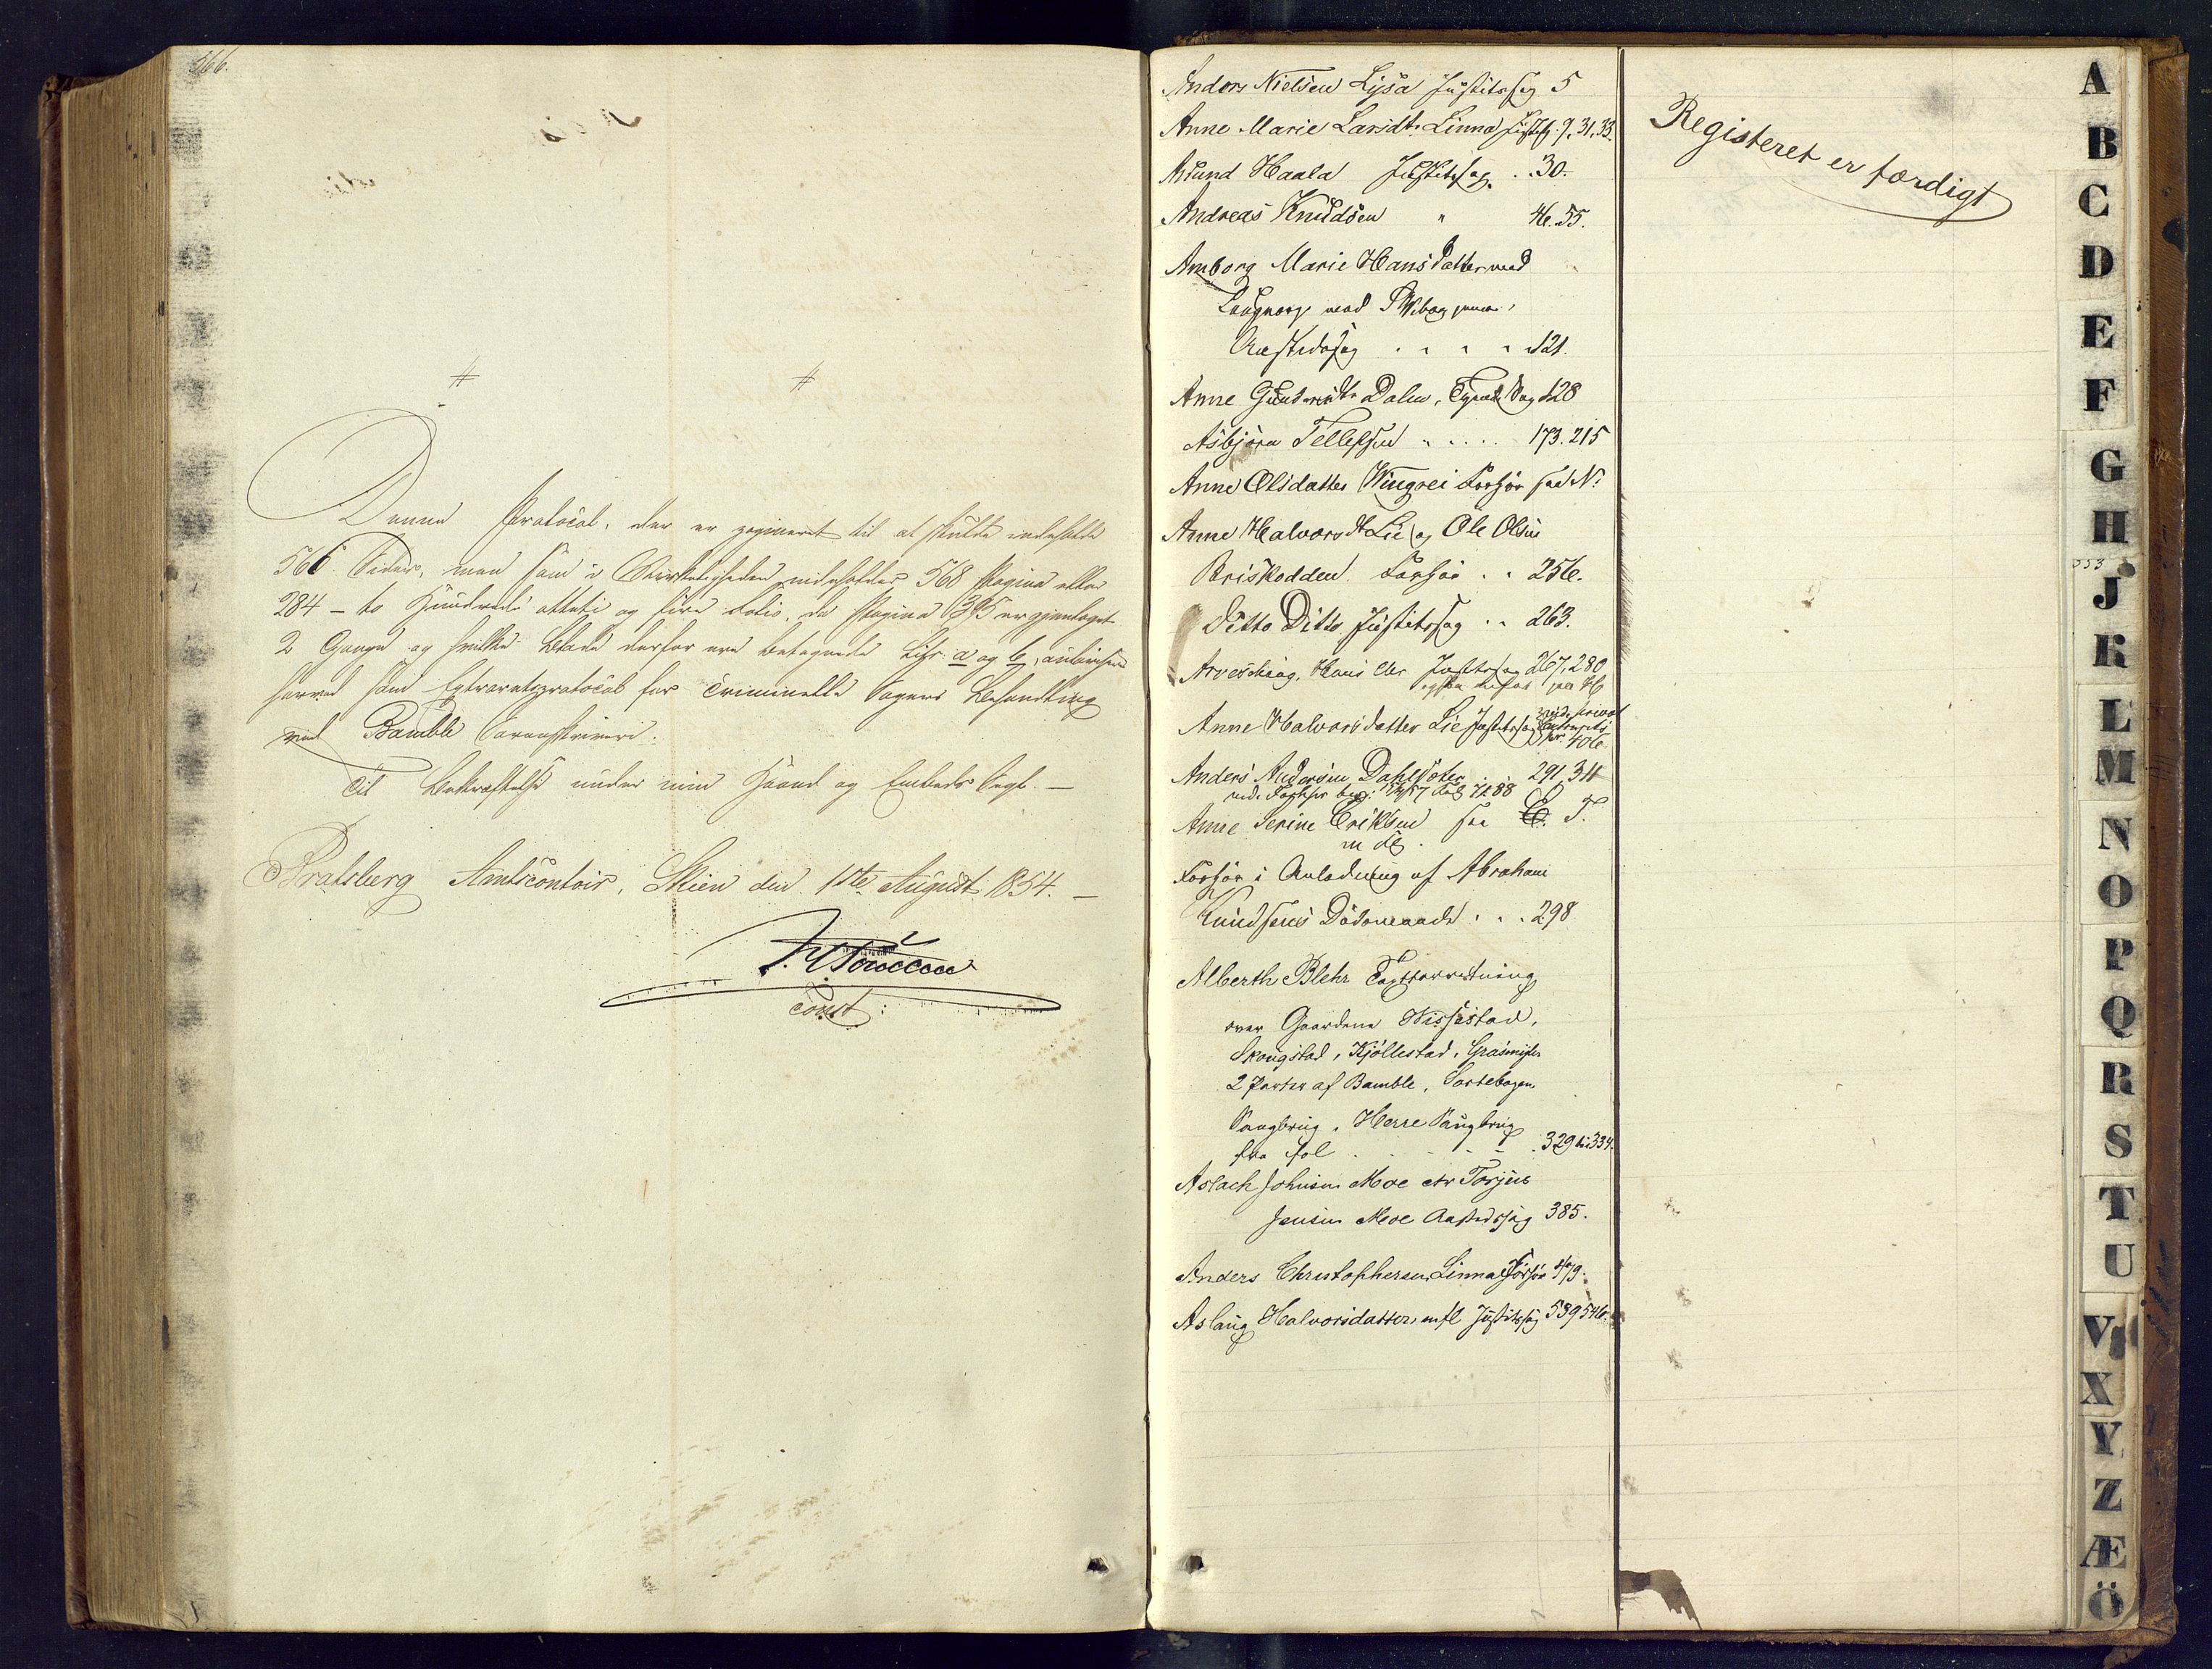 566.
Denne Protocol, der er pagineret til at skulde indeholde
566 Sider, men som i Virkeligheden indeholder 568 Pagina eller
284 – to Hundrede otteti og fire Folio, da Pagina 395 er gjentaget
2 Gange og hvilke Blade derfor ere betegnede Litr. a og b, autoriseres
herved som Extraretsprotocol for Criminelle Sagers Behandling
ved Bamble Sorenskriveri.
Til Bekræftelse under min Haand og Embeds Segl. –
Bratsberg Amtscontoir, Skien den 1ste August 1854. –
const:
Anders Nielsen Lysa Justitssag 5
Anne Marie Larsdtr. Linna Justitsg. 9, 31, 33.
Asund Haala Justitssag . . 30.
Andreas Knudsen " 46. 55.
Amborg Marie Hansdatter med
Laugværg mod
Aastedssag . . . . 121.
Anne Dalen, Sag 128
Asbjørn Tellefsen . . . . 173. 215
Anne Olsdatter Wingrei Forhør see N:
Anne Halvorsdt. Lie og Ole Olsen
Briskodden. Forhør . . 256.
Ditto Ditto Justitssag . . 263.
Arveschoug, Hans Justitssag 267, 280
Anne Halvorsdatter Lie Justitssag
406
Anders Andersen Dahlsoter 291 311
Anne Serine Eriksen see T.
Forhør i Anledning af Abraham
Knudsens Dødsmaade . . . 298
Alberth Blehr Taxtforretning
over Gaardene Nissestad,
Skougstad, Kjøllestad, Grasmyr
2 Parter af Bamble, Sortebogen
Saugbrug, Herre Saugbrug
fra fol . . . . 329 til 334.
Aslach Johnsen Moe ctr Torjus
Jensen Moe Aastedssag 385.
Anders Christophersen Linna Forhør 479.
Aslaug Halvorsdatter, mfl Justitssag 539 546.
Registeret er færdigt
A
B
C
D
E
F
G
H
J
K
L
M
N
O
P
Q
R
S
T
U
V
X
Y
Z
Æ
Ö